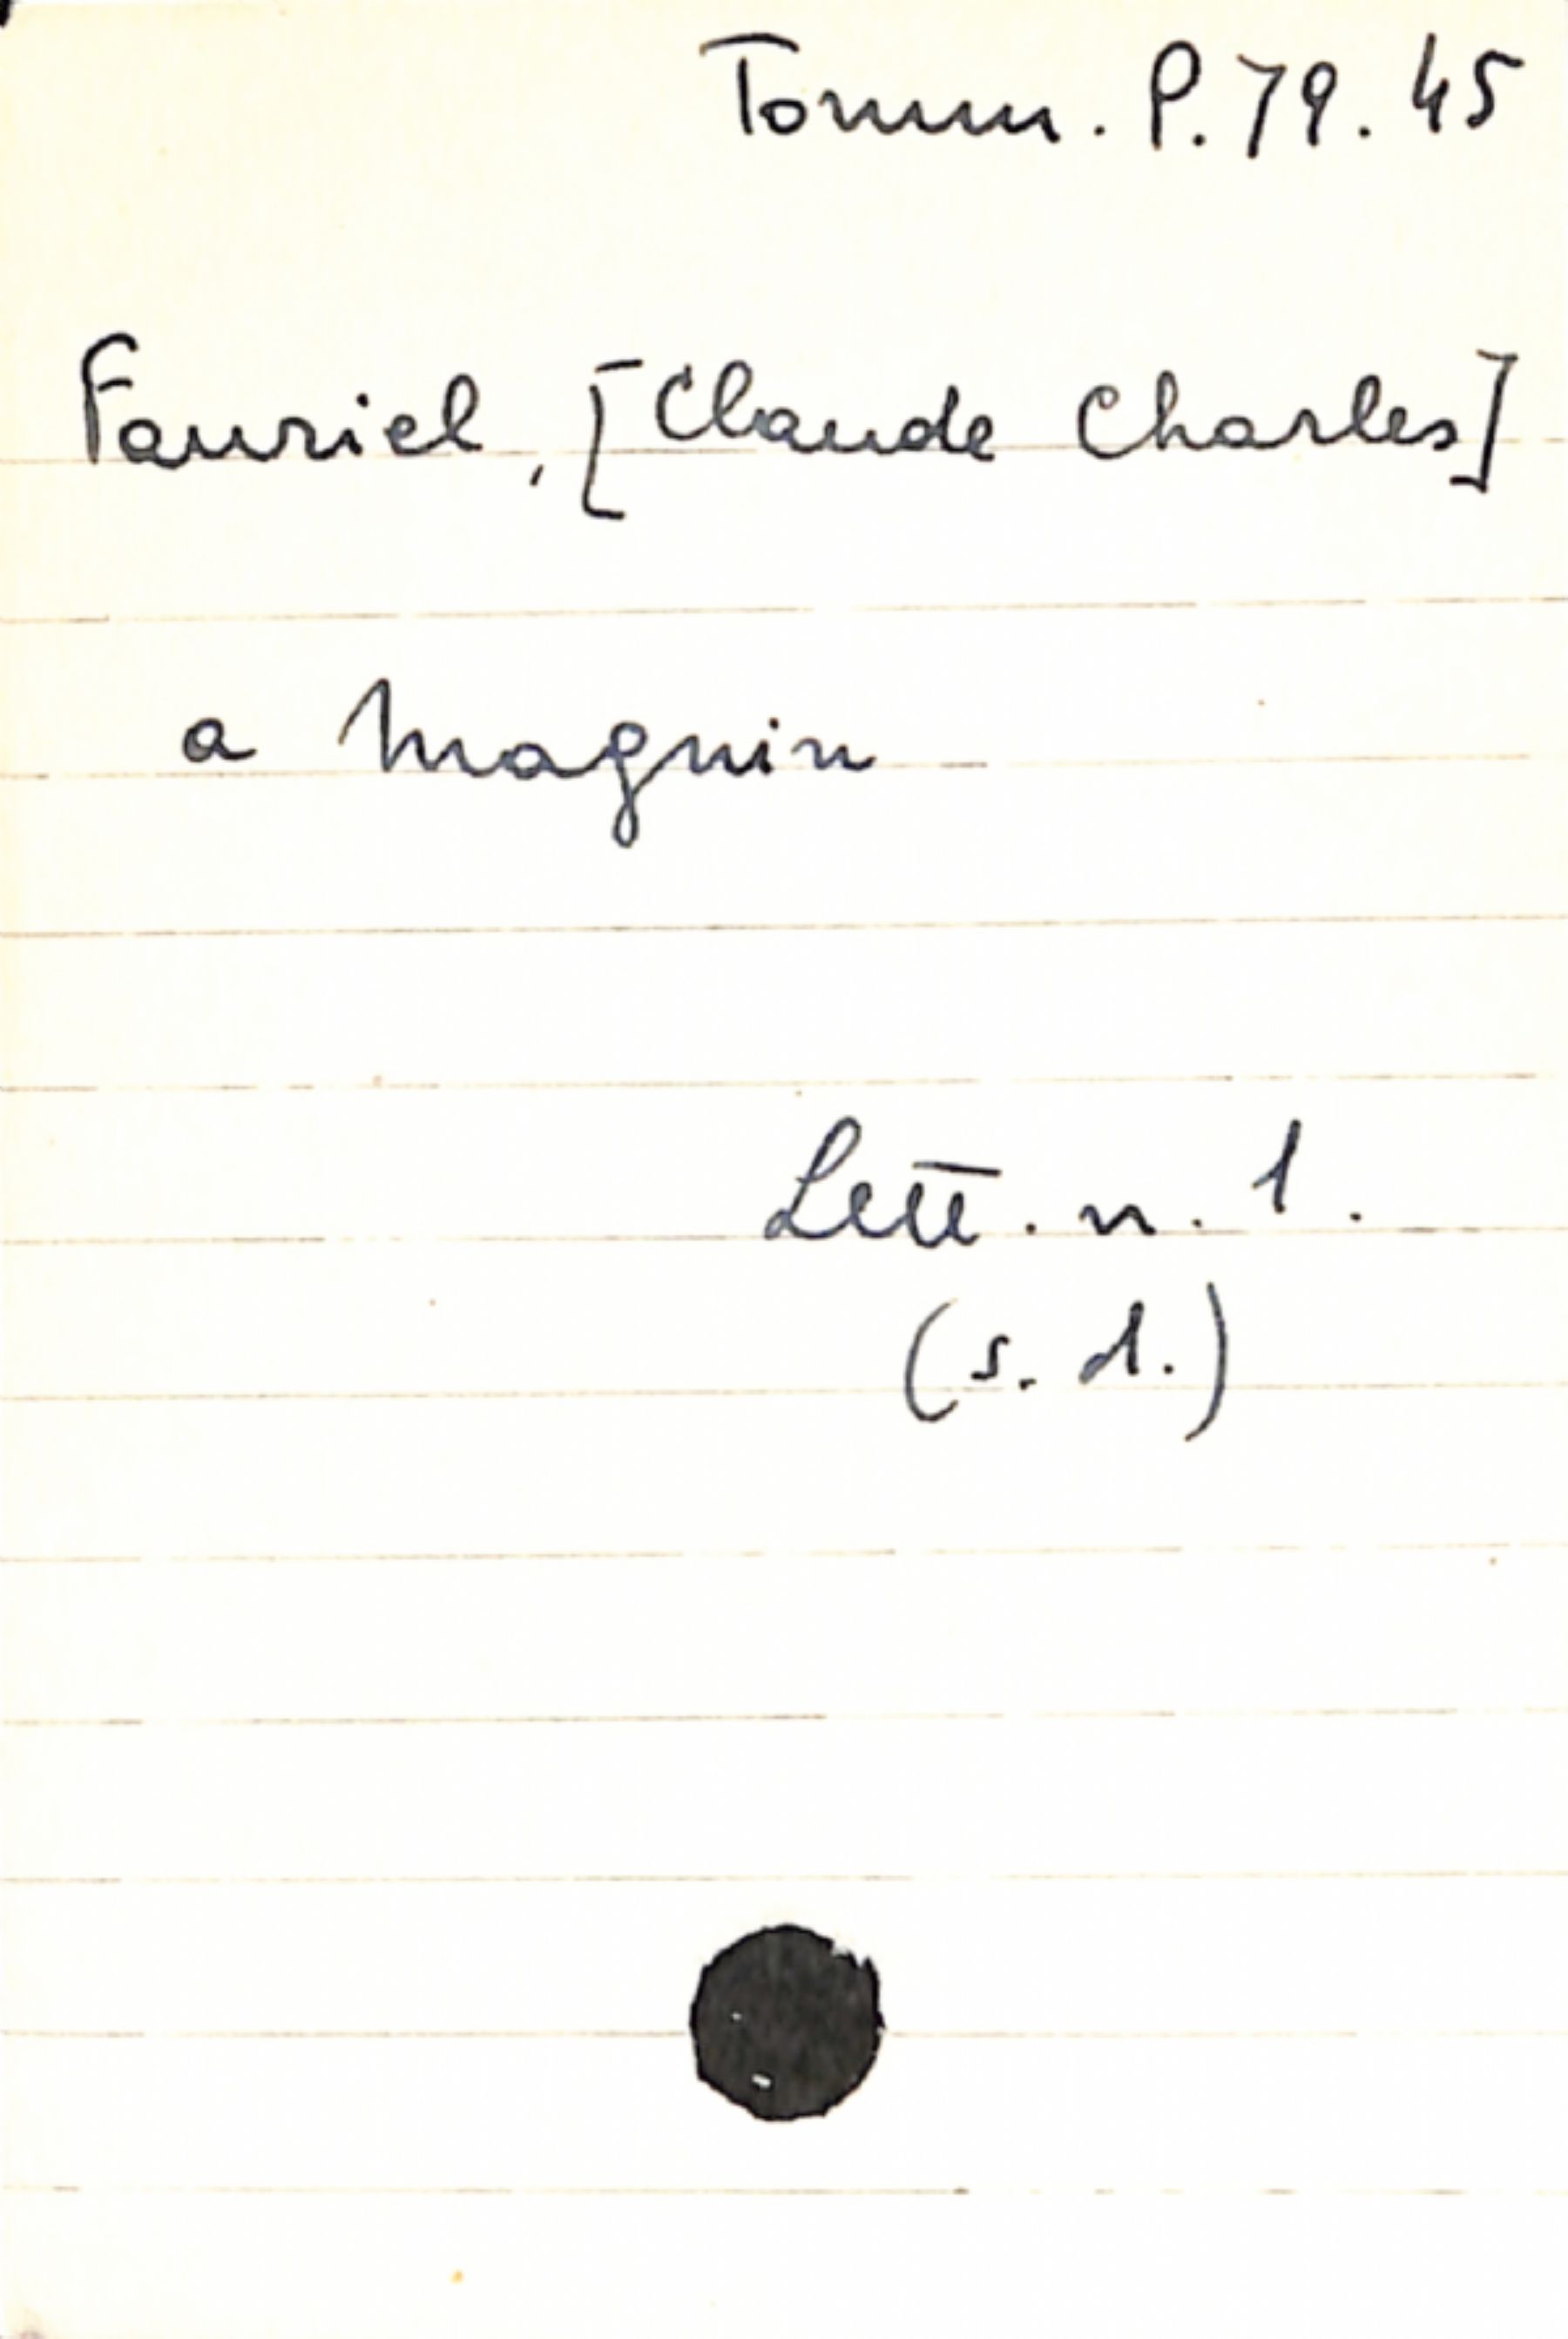 Tomm. P. 79. 45
Fauriel, [Claude Charles]
a Magnin
Lett. n. 1.
(s. d.)